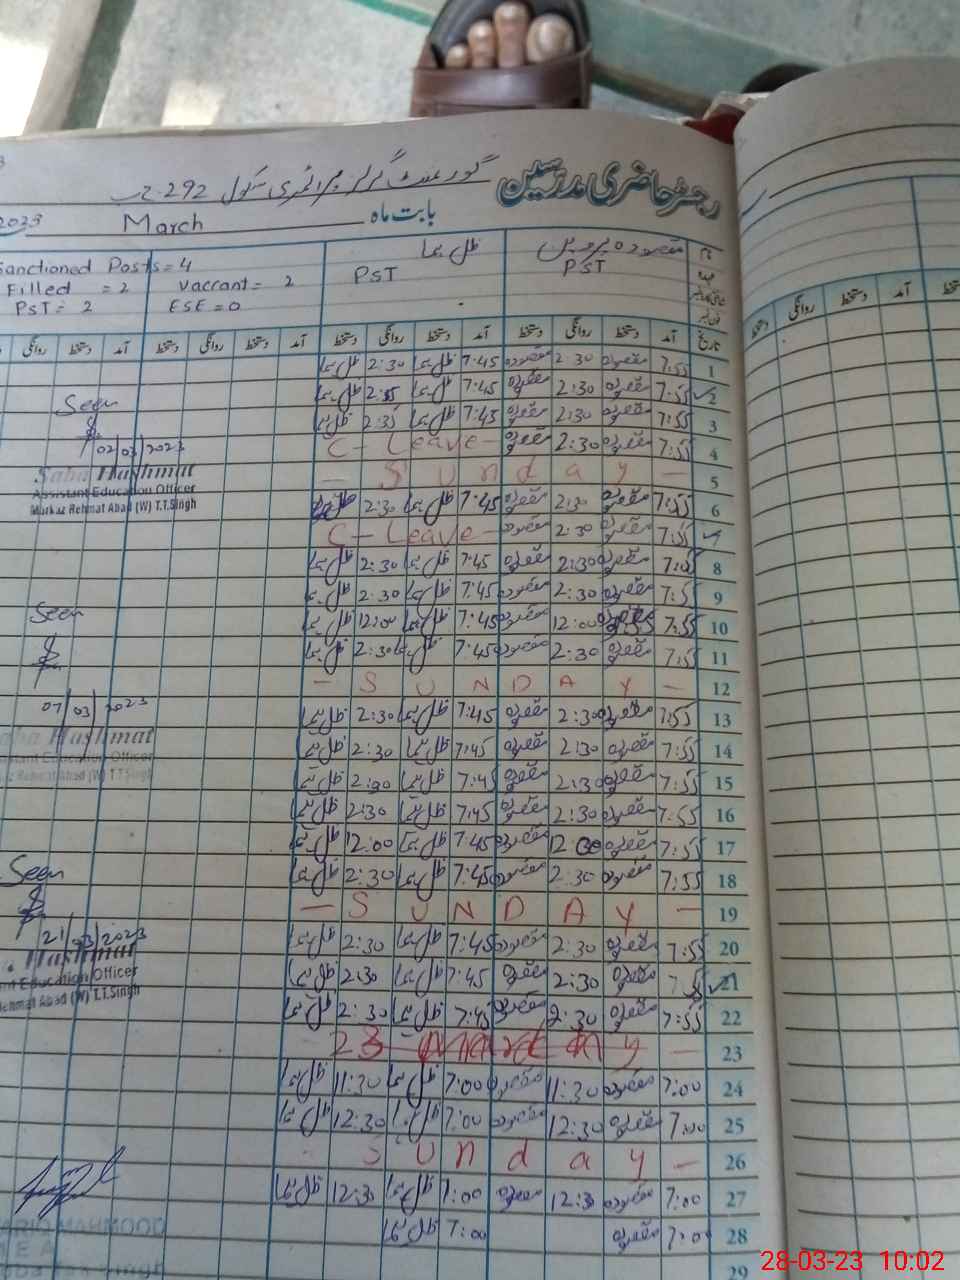 رجسٹر حاضری مدرسین
گورنمنٹ گرلز پرائمری سکول 292 ج ب
بابت ماہ March 2023
نام مقصودہ پروین ظل ہما
عہدہ PST PST
Sanctioned Posts = 4
Filled = 2 Vaccant = 2
PST = 2 ESE = 0
تاریخ آمد دستخط روانگی دستخط آمد دستخط روانگی دستخط آمد دستخط روانگی دستخط آمد دستخط روانگی
1 7:55 مقصودہ 2:30 مقصودہ 7:45 ظل ہما 2:30 ظل ہما
2 7:55 مقصودہ 2:30 مقصودہ 7:45 ظل ہما 2:35 ظل ہما
3 7:55 مقصودہ 2:30 مقصودہ 7:45 ظل ہما 2:35 ظل ہما
4 7:55 مقصودہ 2:30 مقصودہ C- Leave-
5 - Sunday -
6 7:55 مقصودہ 2:30 مقصودہ 7:45 ظل ہما 2:30
7:55 مقصودہ 2:30 مقصودہ C- Leave-
8 7:55 مقصودہ 2:30 مقصودہ 7:45 ظل ہما 2:30 ظل ہما
9 7:55 مقصودہ 2:30 مقصودہ 7:45 ظل ہما 2:30 ظل ہما
10 7:55 مقصودہ 12:00 مقصودہ 7:45 ظل ہما 12:00 ظل ہما
11 7:55 مقصودہ 2:30 مقصودہ 7:45 ظل ہما 2:30 ظل ہما
12 - SUNDAY -
13 7:55 مقصودہ 2:30 مقصودہ 7:45 ظل ہما 2:30 ظل ہما
14 7:55 مقصودہ 2:30 مقصودہ 7:45 ظل ہما 2:30 ظل ہما
15 7:55 مقصودہ 2:30 مقصودہ 7:45 ظل ہما ظل ہما
16 7:55 مقصودہ 2:30 مقصودہ 7:45 ظل ہما 2:30 ظل ہما
17 7:55 مقصودہ 12:00 مقصودہ 7:45 ظل ہما 12:00 ظل ہما
18 7:55 مقصودہ 2:30 مقصودہ 7:45 ظل ہما 2:30 ظل ہما
19 - SUNDAY -
20 7:55 مقصودہ 2:30 مقصودہ 7:45 ظل ہما 2:30 ظل ہما
21 7:55 مقصودہ 2:30 مقصودہ 7:45 ظل ہما 2:30 ظل ہما
22 7:55 مقصودہ 2:30 مقصودہ 7:45 ظل ہما 2:30 ظل ہما
23 - 23 -
24 7:00 مقصودہ 11:30 مقصودہ 7:00 ظل ہما 11:30 ظل ہما
25 7:00 مقصودہ 12:30 مقصودہ 7:00 ظل ہما 12:30 ظل ہما
26 - Sunday -
27 7:00 مقصودہ 12:3 مقصودہ 7:00 ظل ہما 12:3 ظل ہما
28 7:00 مقصودہ 7:00 ظل ہما
29
Seen
02/03/2023
Saba Hashmat
Assistant Education Officer
Markaz Rehmat Abad (W) T.T.Singh
Seen
07/03/2023
aba Hashmat
stant Education Officer
az Rehmat Abad (W) T.T.Singh
Seen
21/03/2023
Hashmat
nt Education Officer
Rehmat Abad (W) T.T.Singh
ARIQ MAHMOOD
M E A
Singh
دستخط روانگی دستخط آمد
28-03-23 10:02